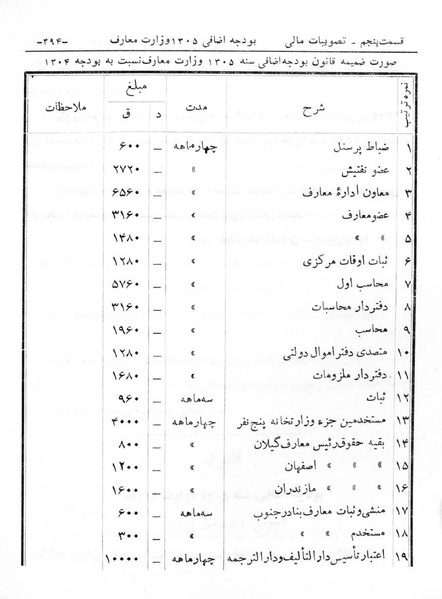 قسمت پنجم - تصویبات مالی بودجه اضافی ۱۳۰۵ وزارت معارف -۳۹۴-
صورت ضمیمه قانون بودجه اضافی سنه ۱۳۰۵ وزارت معارف نسبت به بودجه ۱۳۰۴
نمره ترتیب شرح مدت مبلغ ملاحظات
د ق
۱ ضباط پرسنل چهارماهه — ۶۰۰
۲ عضو تفتیش » — ۲۷۲۰
۳ معاون ادارهٔ معارف » — ۶۵۶۰
۴ عضو معارف » — ۳۱۶۰
۵ » » » — ۱۴۸۰
۶ ثبات اوقات مرکزی » — ۱۲۸۰
۷ محاسب اول » — ۵۷۶۰
۸ دفتردار محاسبات » — ۳۱۶۰
۹ محاسب » — ۱۹۶۰
۱۰ متصدی دفتر اموال دولتی » — ۱۲۸۰
۱۱ دفتردار ملزومات » — ۱۶۸۰
۱۲ ثبات سه ماهه — ۹۶۰
۱۳ مستخدمین جزء وزارتخانه پنج نفر چهارماهه — ۴۰۰۰
۱۴ بقیه حقوق رئیس معارف گیلان » — ۸۰۰
۱۵ » » » اصفهان » — ۱۲۰۰
۱۶ » » » مازندران » — ۱۶۰۰
۱۷ منشی و ثبات معارف بنادر جنوب سه ماهه — ۶۰۰
۱۸ مستخدم » » » — ۳۰۰
۱۹ اعتبار تأسیس دارالتألیف و دارالترجمه چهارماهه — ۱۰۰۰۰